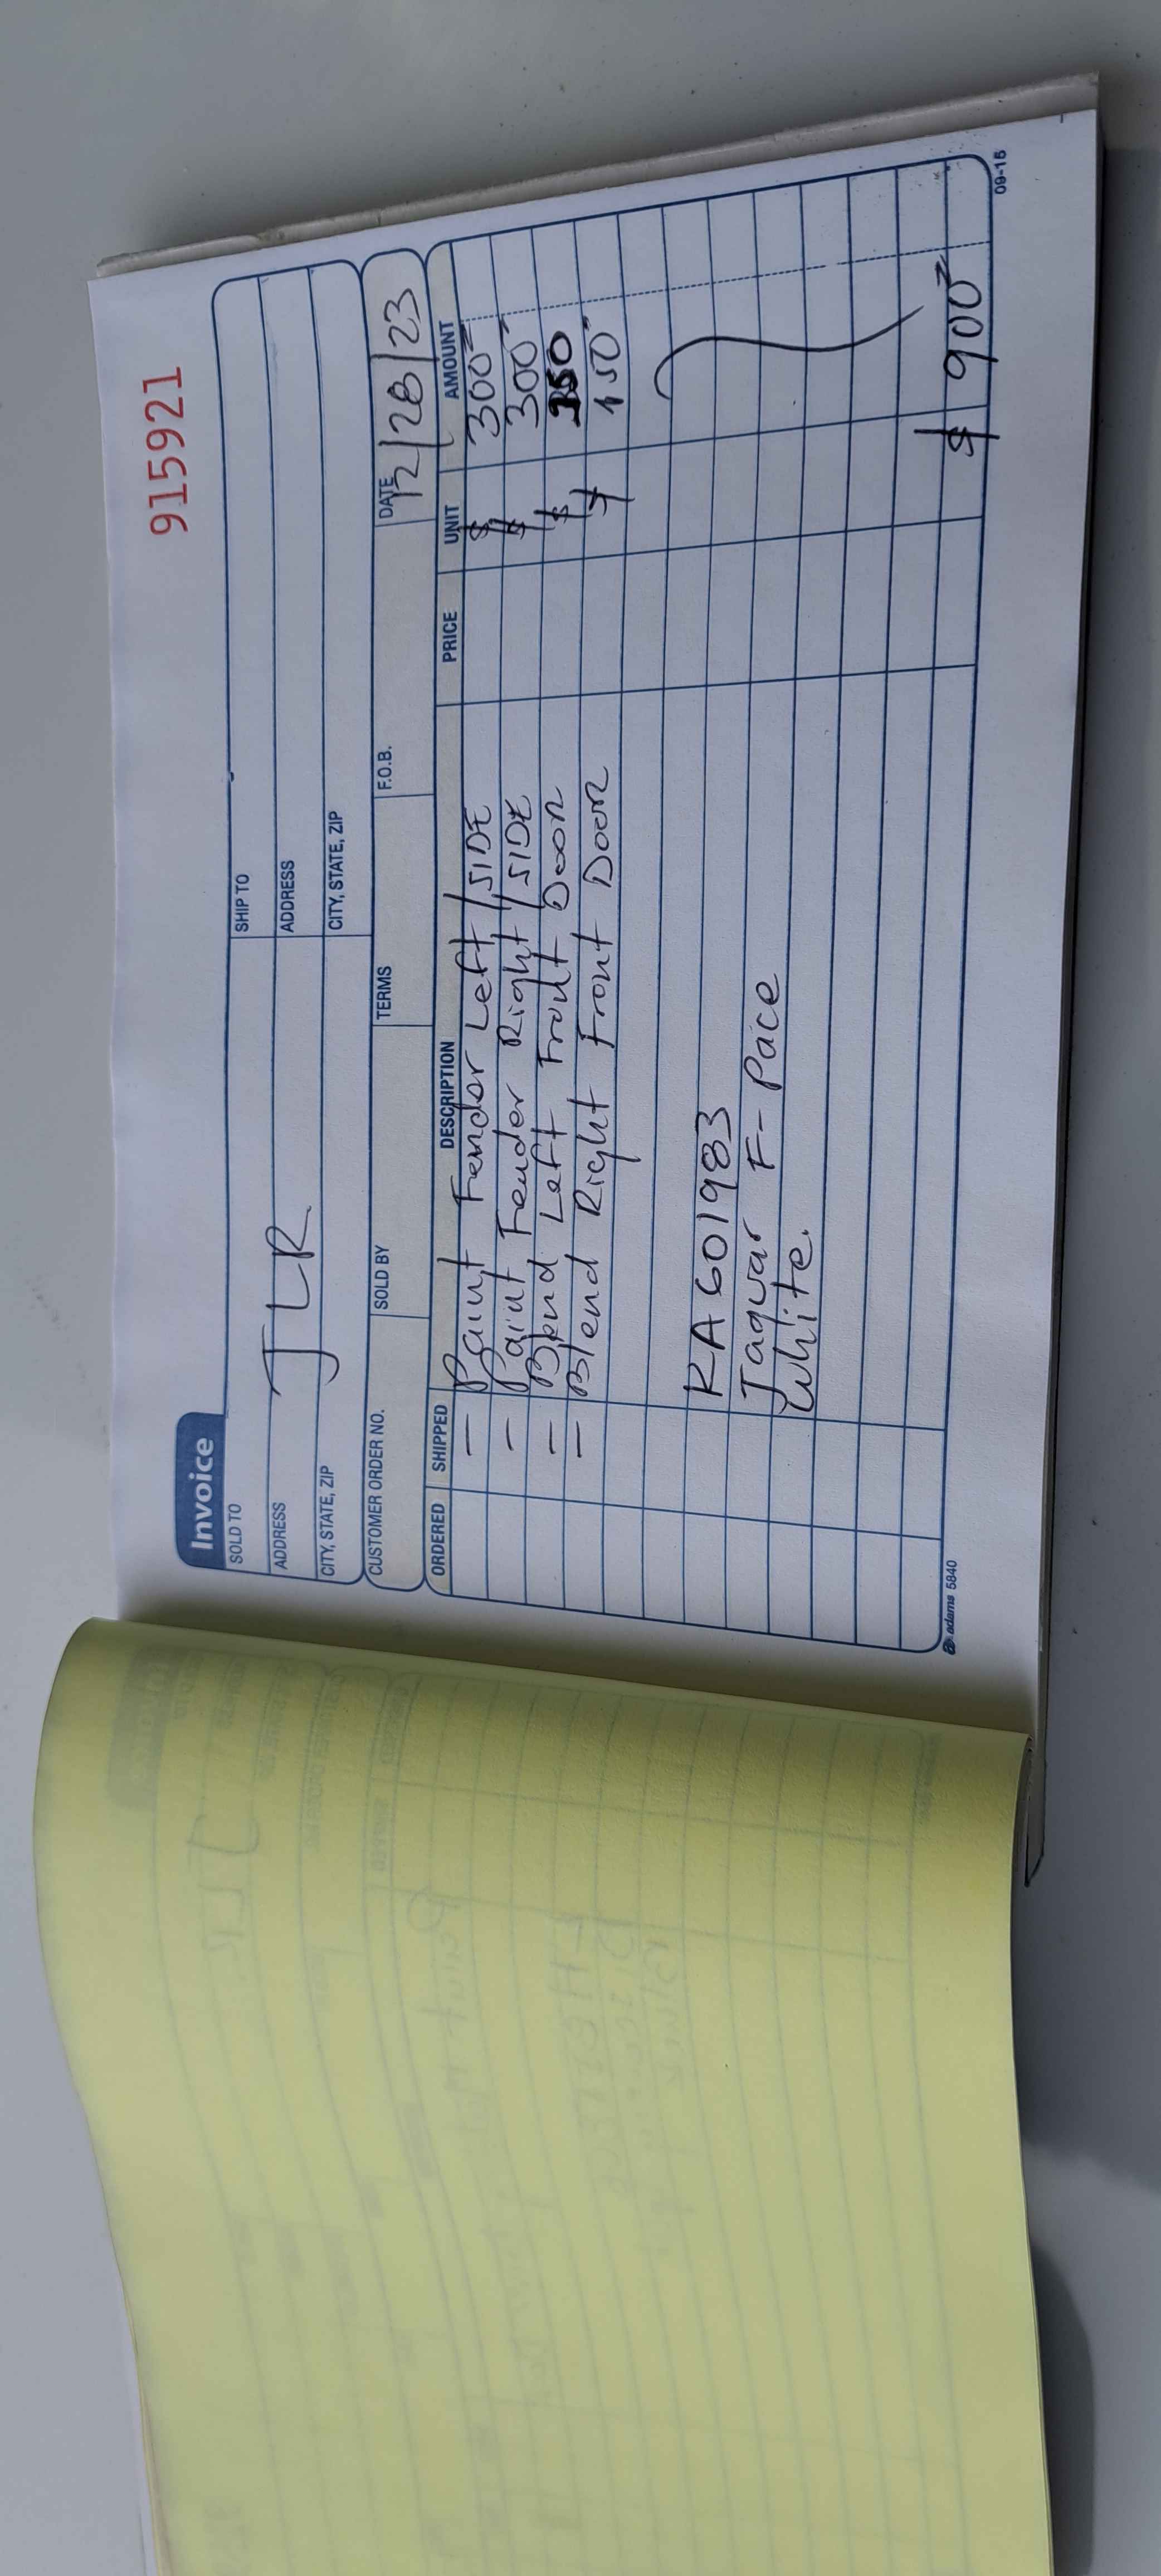 915921
Invoice
SOLD TO
SHIP TO
ADDRESS
JLR
ADDRESS
CITY, STATE, ZIP
CITY, STATE, ZIP
CUSTOMER ORDER NO. SOLD BY TERMS F.O.B. DATE 12/28/23
ORDERED SHIPPED DESCRIPTION PRICE UNIT AMOUNT
- Paint Fender Left/SIDE $ 300=
- Paint Fender Right/SIDE $ 300=
- Blend Left Front Door $ 150
- Blend Right Front Door $ 150"
RA601983
Jaquar F-Pace
White.
$ 900=
adams 5840
09-15